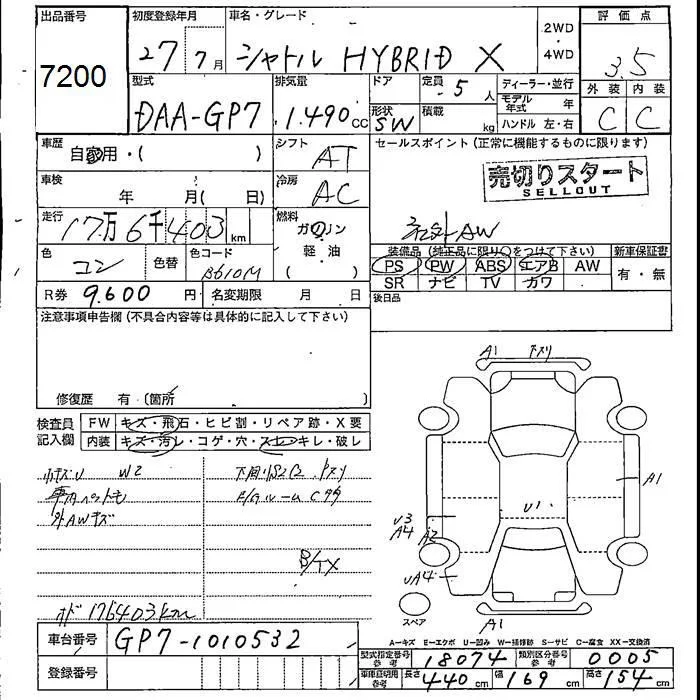 出品番号
7200
初度登録年月
27 7月
車名・グレード
シャトル HYBRID X
2WD
・
4WD
評価点
3.5
外装 内装
C C
型式
DAA-GP7
排気量
1.490cc
ドア
定員 5人
形状
SW
積載 kg
ディーラー・並行
モデル年式 年
ハンドル 左・右
車歴
自家用・( )
シフト
AT
セールスポイント (正常に機能するものに限ります)
売切りスタート
SELLOUT
車検
年 月( 日)
冷房
AC
走行
17万6千403km
燃料
ガソリン
軽・油
( )
社外AW
色
コン
色替
色コード
B610M
装備品 (純正品に限り○をつけて下さい)
新車保証書
PS PW ABS エアB AW
SR ナビ TV カワ
有・無
R券 9.600円
名変期限 月 日
後日品
注意事項申告欄 (不具合内容等は具体的に記入して下さい)
修復歴 有 (箇所 )
検査員記入欄
FW キズ・飛石・ヒビ割・リペア跡・X要
内装 キズ・汚レ・コゲ・穴・スレ・キレ・破レ
小キズU W2
外AWキズ
B/TX
オド 176403km
A1
A1
U1
U3
A4 A2
UA4
スペア
A1
A-キズ E-エクボ U-凹み W-補修跡 S-サビ C-腐食 XX-交換済
車台番号
GP7-1010532
登録番号
型式指定番号参考 18074
類別区分番号参考 0005
車庫証明用参考 長さ 440cm 幅 169cm 高さ 154cm